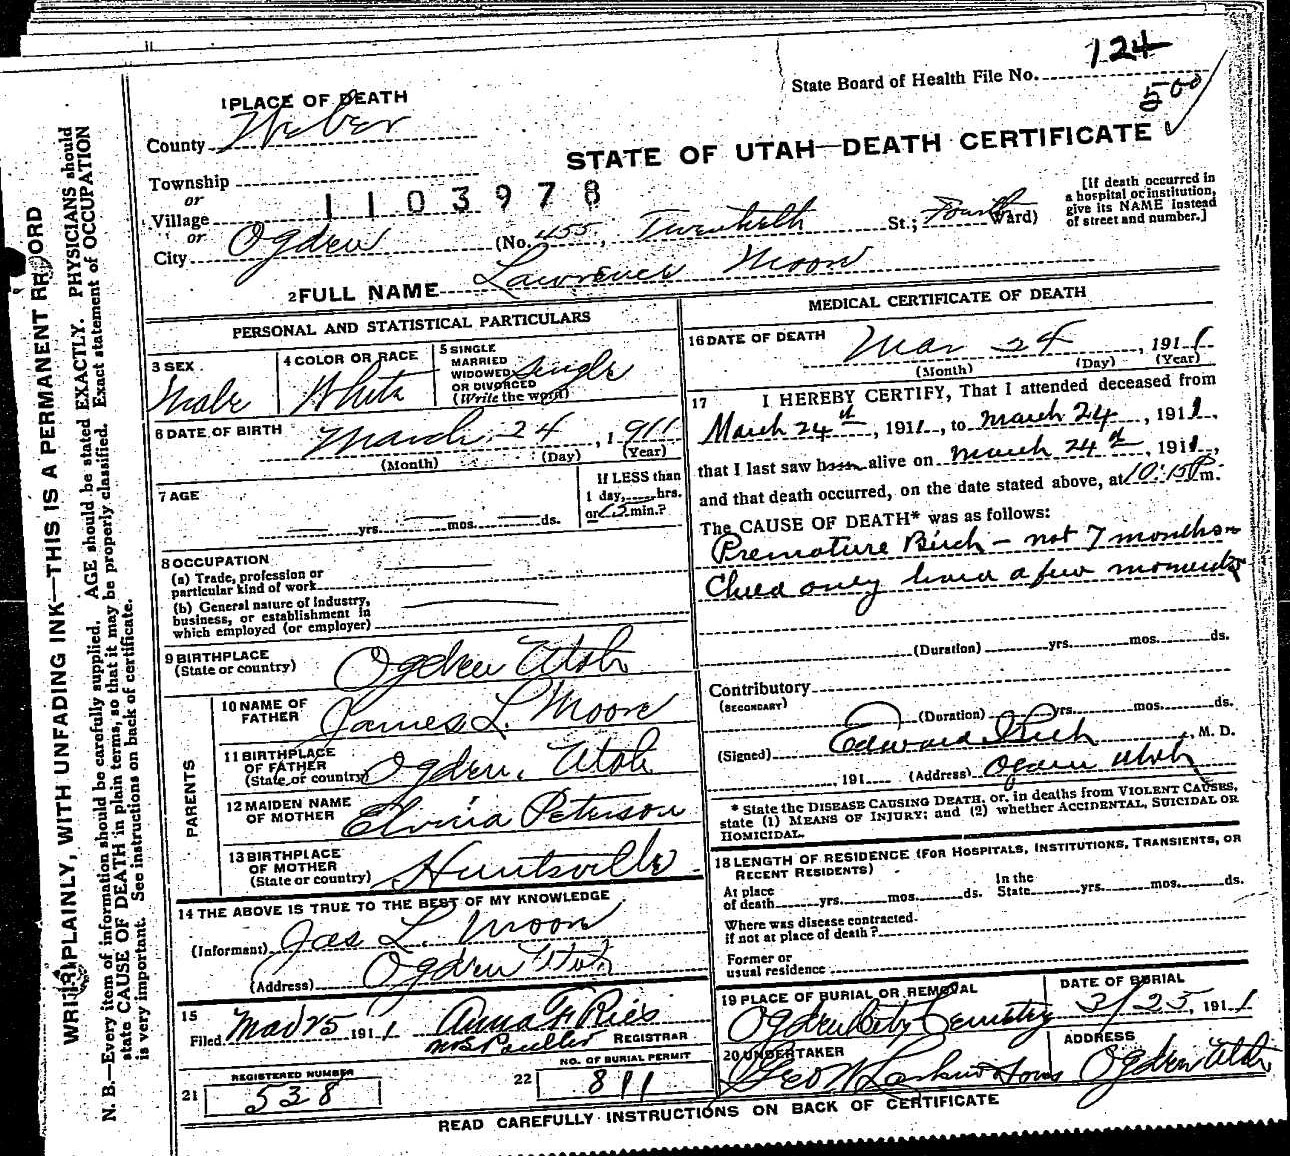 124
State Board of Health File No.
500
1 PLACE OF DEATH
County Weber
STATE OF UTAH—DEATH CERTIFICATE
Township
or
Village
1103978
or
City Ogden (No. 455, Twentieth St.; Fourth Ward)
[If death occurred in
a hospital or institution,
give its NAME instead
of street and number.]
2 FULL NAME Lawrence Moon
PERSONAL AND STATISTICAL PARTICULARS
3 SEX
Male
4 COLOR OR RACE
White
5 SINGLE
MARRIED
WIDOWED
OR DIVORCED
(Write the word)
Single
6 DATE OF BIRTH
March 24, 1911
(Month) (Day) (Year)
7 AGE
yrs. mos. ds.
If LESS than
1 day, hrs.
or min.?
8 OCCUPATION
(a) Trade, profession or
particular kind of work
(b) General nature of industry,
business, or establishment in
which employed (or employer)
9 BIRTHPLACE
(State or country)
Ogden Utah
PARENTS
10 NAME OF
FATHER
James L. Moore
11 BIRTHPLACE
OF FATHER
(State or country)
Ogden, Utah
12 MAIDEN NAME
OF MOTHER
Elvina Peterson
13 BIRTHPLACE
OF MOTHER
(State or country)
Huntsville
14 THE ABOVE IS TRUE TO THE BEST OF MY KNOWLEDGE
(Informant) Jas L. Moon
(Address) Ogden Utah
15
Filed Mar 25 1911 Anna F Ries
REGISTRAR
21 REGISTERED NUMBER
538
22 NO. OF BURIAL PERMIT
811
MEDICAL CERTIFICATE OF DEATH
16 DATE OF DEATH Mar 24, 1911
(Month) (Day) (Year)
17 I HEREBY CERTIFY, That I attended deceased from
March 24th, 1911, to March 24, 1911,
that I last saw h alive on March 24th, 1911,
and that death occurred, on the date stated above, at 10:15P m.
The CAUSE OF DEATH* was as follows:
Premature Birth - not 7 months -
Child only lived a few moments
(Duration) yrs. mos. ds.
Contributory
(SECONDARY)
(Duration) yrs. mos. ds.
(Signed) Edward I Rich, M. D.
, 191 (Address) Ogden Utah
* State the DISEASE CAUSING DEATH, or, in deaths from VIOLENT CAUSES,
state (1) MEANS OF INJURY; and (2) whether ACCIDENTAL, SUICIDAL OR
HOMICIDAL.
18 LENGTH OF RESIDENCE (FOR HOSPITALS, INSTITUTIONS, TRANSIENTS, OR
RECENT RESIDENTS)
At place
of death yrs. mos. ds.
In the
State yrs. mos. ds.
Where was disease contracted.
if not at place of death?
Former or
usual residence
19 PLACE OF BURIAL OR REMOVAL
Ogden City Cemetery
DATE OF BURIAL
3/25, 1911
20 UNDERTAKER
Geo W Larkin & Sons
ADDRESS
Ogden Utah
READ CAREFULLY INSTRUCTIONS ON BACK OF CERTIFICATE
WRITE PLAINLY, WITH UNFADING INK—THIS IS A PERMANENT RECORD
N. B.—Every item of information should be carefully supplied. AGE should be stated EXACTLY. PHYSICIANS should
state CAUSE OF DEATH in plain terms, so that it may be properly classified. Exact statement of OCCUPATION
is very important. See instructions on back of certificate.